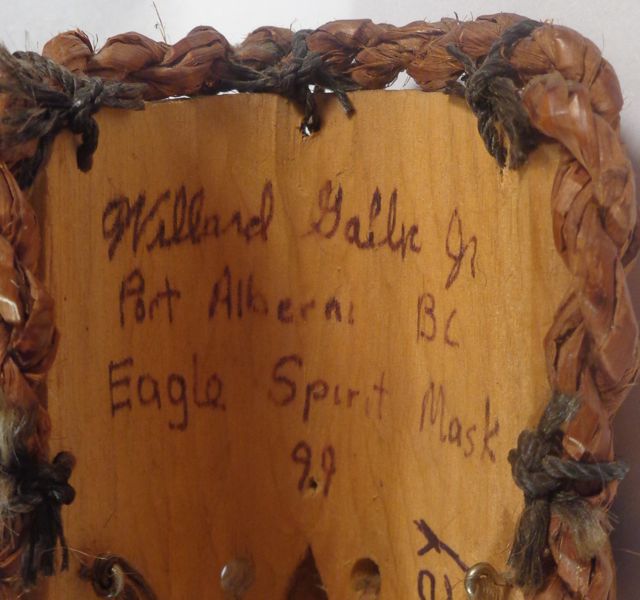 Willard Gallic Jr
Port Alberni BC
Eagle Spirit Mask
99